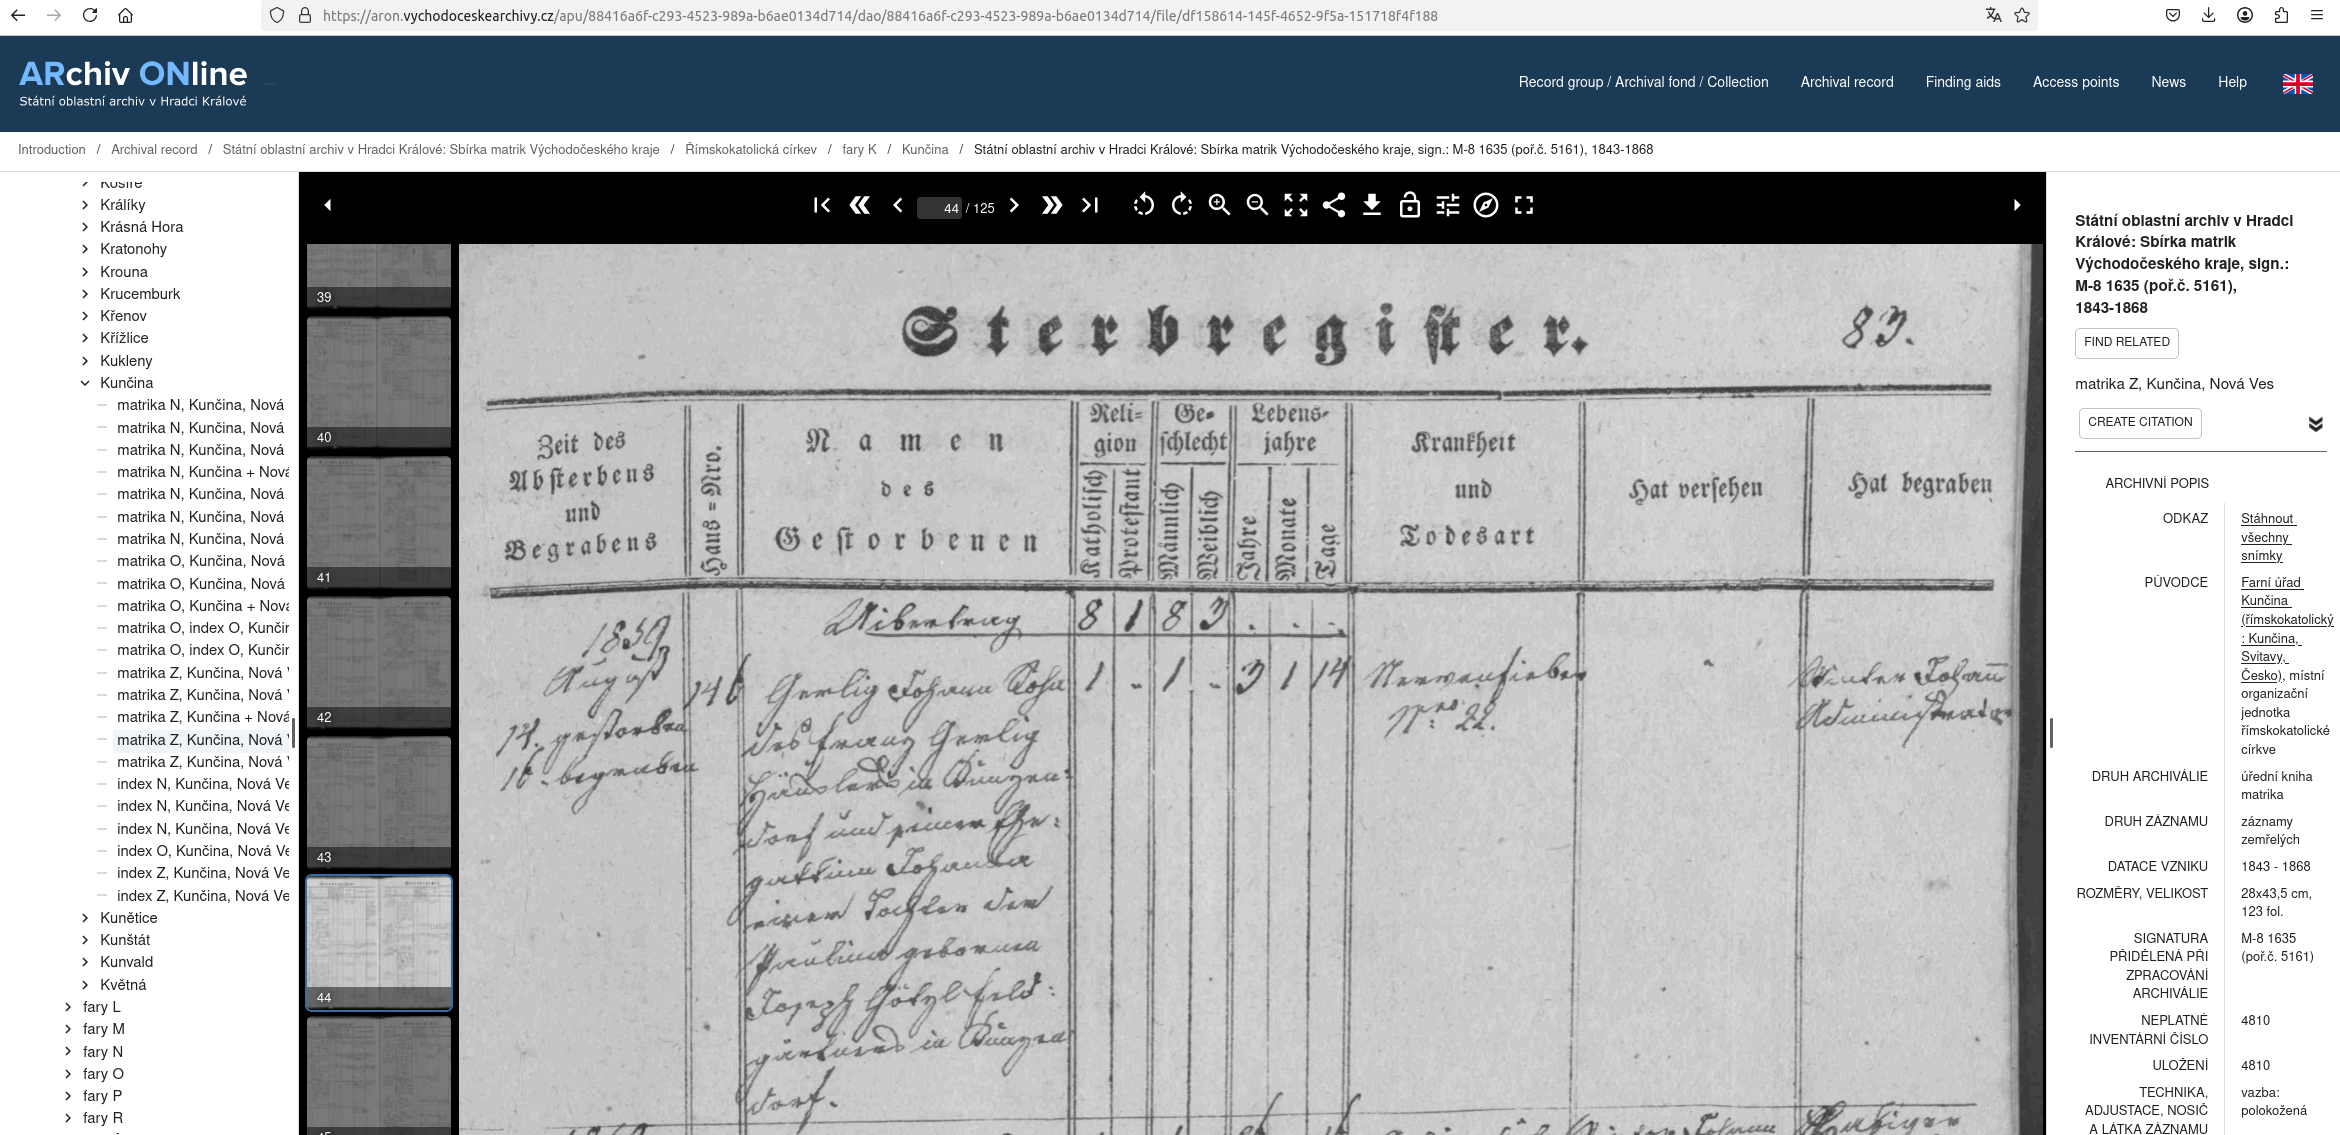 https://aron.vychodoceskearchivy.cz/apu/88416a6f-c293-4523-989a-b6ae0134d714/dao/88416a6f-c293-4523-989a-b6ae0134d714/file/df158614-145f-4652-9f5a-151718f4f188
ARchiv ONline
Státní oblastní archiv v Hradci Králové
Record group / Archival fond / Collection
Archival record
Finding aids
Access points
News
Help
Introduction / Archival record / Státní oblastní archiv v Hradci Králové: Sbírka matrik Východočeského kraje / Římskokatolická církev / fary K / Kunčina / Státní oblastní archiv v Hradci Králové: Sbírka matrik Východočeského kraje, sign.: M-8 1635 (poř.č. 5161), 1843-1868
Králíky
Krásná Hora
Kratonohy
Krouna
Krucemburk
Křenov
Křížlice
Kukleny
Kunčina
matrika N, Kunčina, Nová
matrika N, Kunčina, Nová
matrika N, Kunčina, Nová
matrika N, Kunčina + Nová
matrika N, Kunčina, Nová
matrika N, Kunčina, Nová
matrika N, Kunčina, Nová
matrika O, Kunčina, Nová
matrika O, Kunčina, Nová
matrika O, Kunčina + Nová
matrika O, index O, Kunčin
matrika O, index O, Kunčin
matrika Z, Kunčina, Nová V
matrika Z, Kunčina, Nová V
matrika Z, Kunčina + Nová
matrika Z, Kunčina, Nová V
matrika Z, Kunčina, Nová V
index N, Kunčina, Nová Ve
index N, Kunčina, Nová Ve
index N, Kunčina, Nová Ve
index O, Kunčina, Nová Ve
index Z, Kunčina, Nová Ve
index Z, Kunčina, Nová Ve
Kunětice
Kunštát
Kunvald
Květná
fary L
fary M
fary N
fary O
fary P
fary R
44 / 125
39
40
41
42
43
44
Sterbregister.
83.
Zeit des
Absterbens
und
Begrabens
Haus=Nro.
Namen
des
Gestorbenen
Reli=
gion
Katholisch
Protestant
Ge=
schlecht
Männlich
Weiblich
Lebens=
jahre
Jahre
Monate
Tage
Krankheit
und
Todesart
Hat versehen
Hat begraben
Uibertrag 8 1 8 3 . . .
1859
August
14. gestorben
16. begraben
146
Gerlig Johann Sohn
des Franz Gerlig
Häuslers in Kunzen=
dorf und seiner Ehe=
gattin Johanna
einer Tochter der
Paulina gebornen
Joseph Götzl Feld=
gärtners in Kunzen
dorf.
1 - 1 - 3 1 14
Nervenfieber
Nro 22.
Winter Johann
Administrator
Státní oblastní archiv v Hradci
Králové: Sbírka matrik
Východočeského kraje, sign.:
M-8 1635 (poř.č. 5161),
1843-1868
FIND RELATED
matrika Z, Kunčina, Nová Ves
CREATE CITATION
ARCHIVNÍ POPIS
ODKAZ
Stáhnout
všechny
snímky
PŮVODCE
Farní úřad
Kunčina
(římskokatolický
: Kunčina,
Svitavy,
Česko), místní
organizační
jednotka
římskokatolické
církve
DRUH ARCHIVÁLIE
úřední kniha
matrika
DRUH ZÁZNAMU
záznamy
zemřelých
DATACE VZNIKU
1843 - 1868
ROZMĚRY, VELIKOST
28x43,5 cm,
123 fol.
SIGNATURA
PŘIDĚLENÁ PŘI
ZPRACOVÁNÍ
ARCHIVÁLIE
M-8 1635
(poř.č. 5161)
NEPLATNÉ
INVENTÁRNÍ ČÍSLO
4810
ULOŽENÍ
4810
TECHNIKA,
ADJUSTACE, NOSIČ
A LÁTKA ZÁZNAMU
vazba:
polokožená